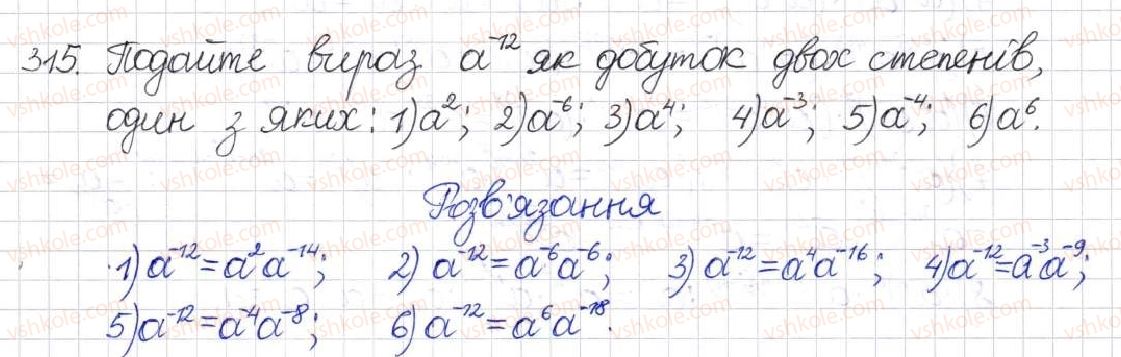 315. Подайте вираз a⁻¹² як добуток двох степенів,
один з яких: 1) a²; 2) a⁻⁶; 3) a⁴; 4) a⁻³; 5) a⁻⁴; 6) a⁶.
Розв'язання
1) a⁻¹² = a²a⁻¹⁴; 2) a⁻¹² = a⁻⁶a⁻⁶; 3) a⁻¹² = a⁴a⁻¹⁶; 4) a⁻¹² = a⁻³a⁻⁹;
5) a⁻¹² = a⁻⁴a⁻⁸; 6) a⁻¹² = a⁶a⁻¹⁸.